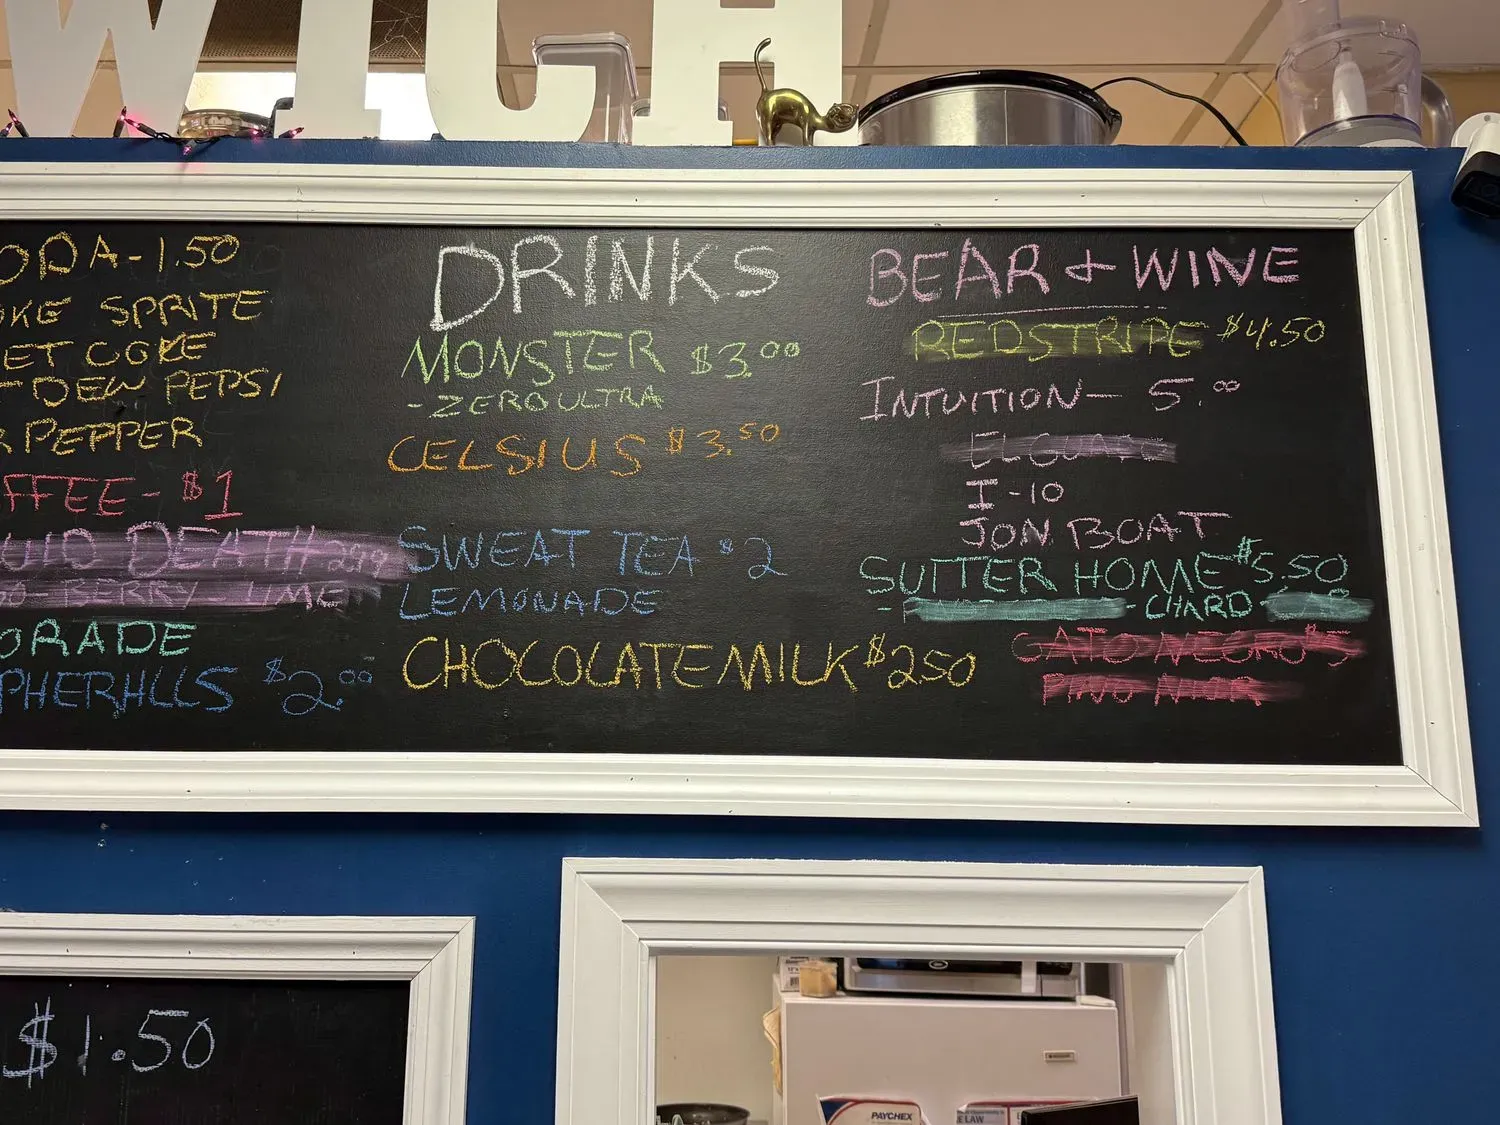 WICH
ODA-1.50
OKE SPRITE
ET COKE
T DEW PEPSI
R PEPPER
FFEE- $1
UID DEATH 2.99
GO-BERRY-LIME
ORADE
PHERHILLS $2.00
DRINKS
MONSTER $3.00
-ZERO ULTRA
CELSIUS $3.50
SWEAT TEA $2
LEMONADE
CHOCOLATE MILK $250
BEAR + WINE
REDSTRIPE $4.50
INTUITION- 5.00
I-10
JON BOAT
SUTTER HOME $5.50
- CHARD -
GATO NEGRO $5
PINO NOIR
$1.50
PAYCHEX
E LAW